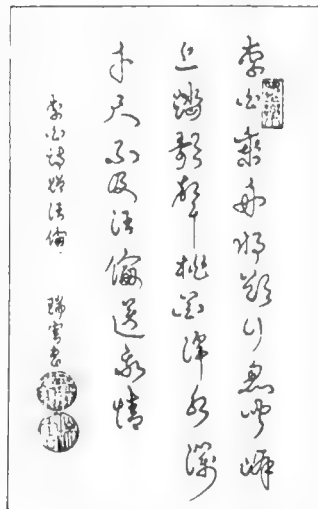 李白乘舟將欲行忽聞岸
上踏歌聲桃花潭水深
千尺不及汪倫送我情
李白詩贈汪倫 瑞雪書